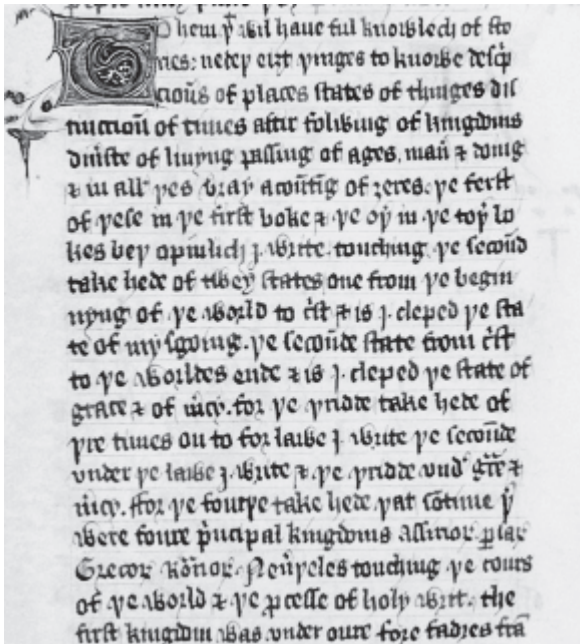 To hem þt wil haue ful knowlech of sto
ries: nedeþ eiȝt þinges to knowe descp̄
cioūs of places states of thinges dis
tinccioū of times aftir folwing of kingdoms
diuiste of liuyng passing of ages. man̄ & doing
& in all þes vray acoūtīg of ȝeres. þe ferst
of þese in þe first boke & þe oþ̄ in þe toþ̄ bo
kes beþ opinlich j. write. touching þe secoūd
take hede of tweȳ states one from þe begin
nyng of þe world to c̄st & is j. cleped þe sta
te of mysgoing. þe secoūde state from c̄st
to þe worldes ende & is j. cleped þe state of
grace & of m̄cy. for þe þridde take hede of
þre times on to for lawe j. write þe secoūde
vnder þe lawe j. write & þe þridde vnd' gr̄e &
m̄cy. ffor þe fourþe take hede. þat cōtinue þ̄
were foure p̄ncipal kingdoms Assirior. ꝑsar
Grecor. Rōnor. Neu̅þeles touching þe cours
of þe world & þe ꝓcesse of holy writ. the
first kingdom was vnder oure fore fadres frā